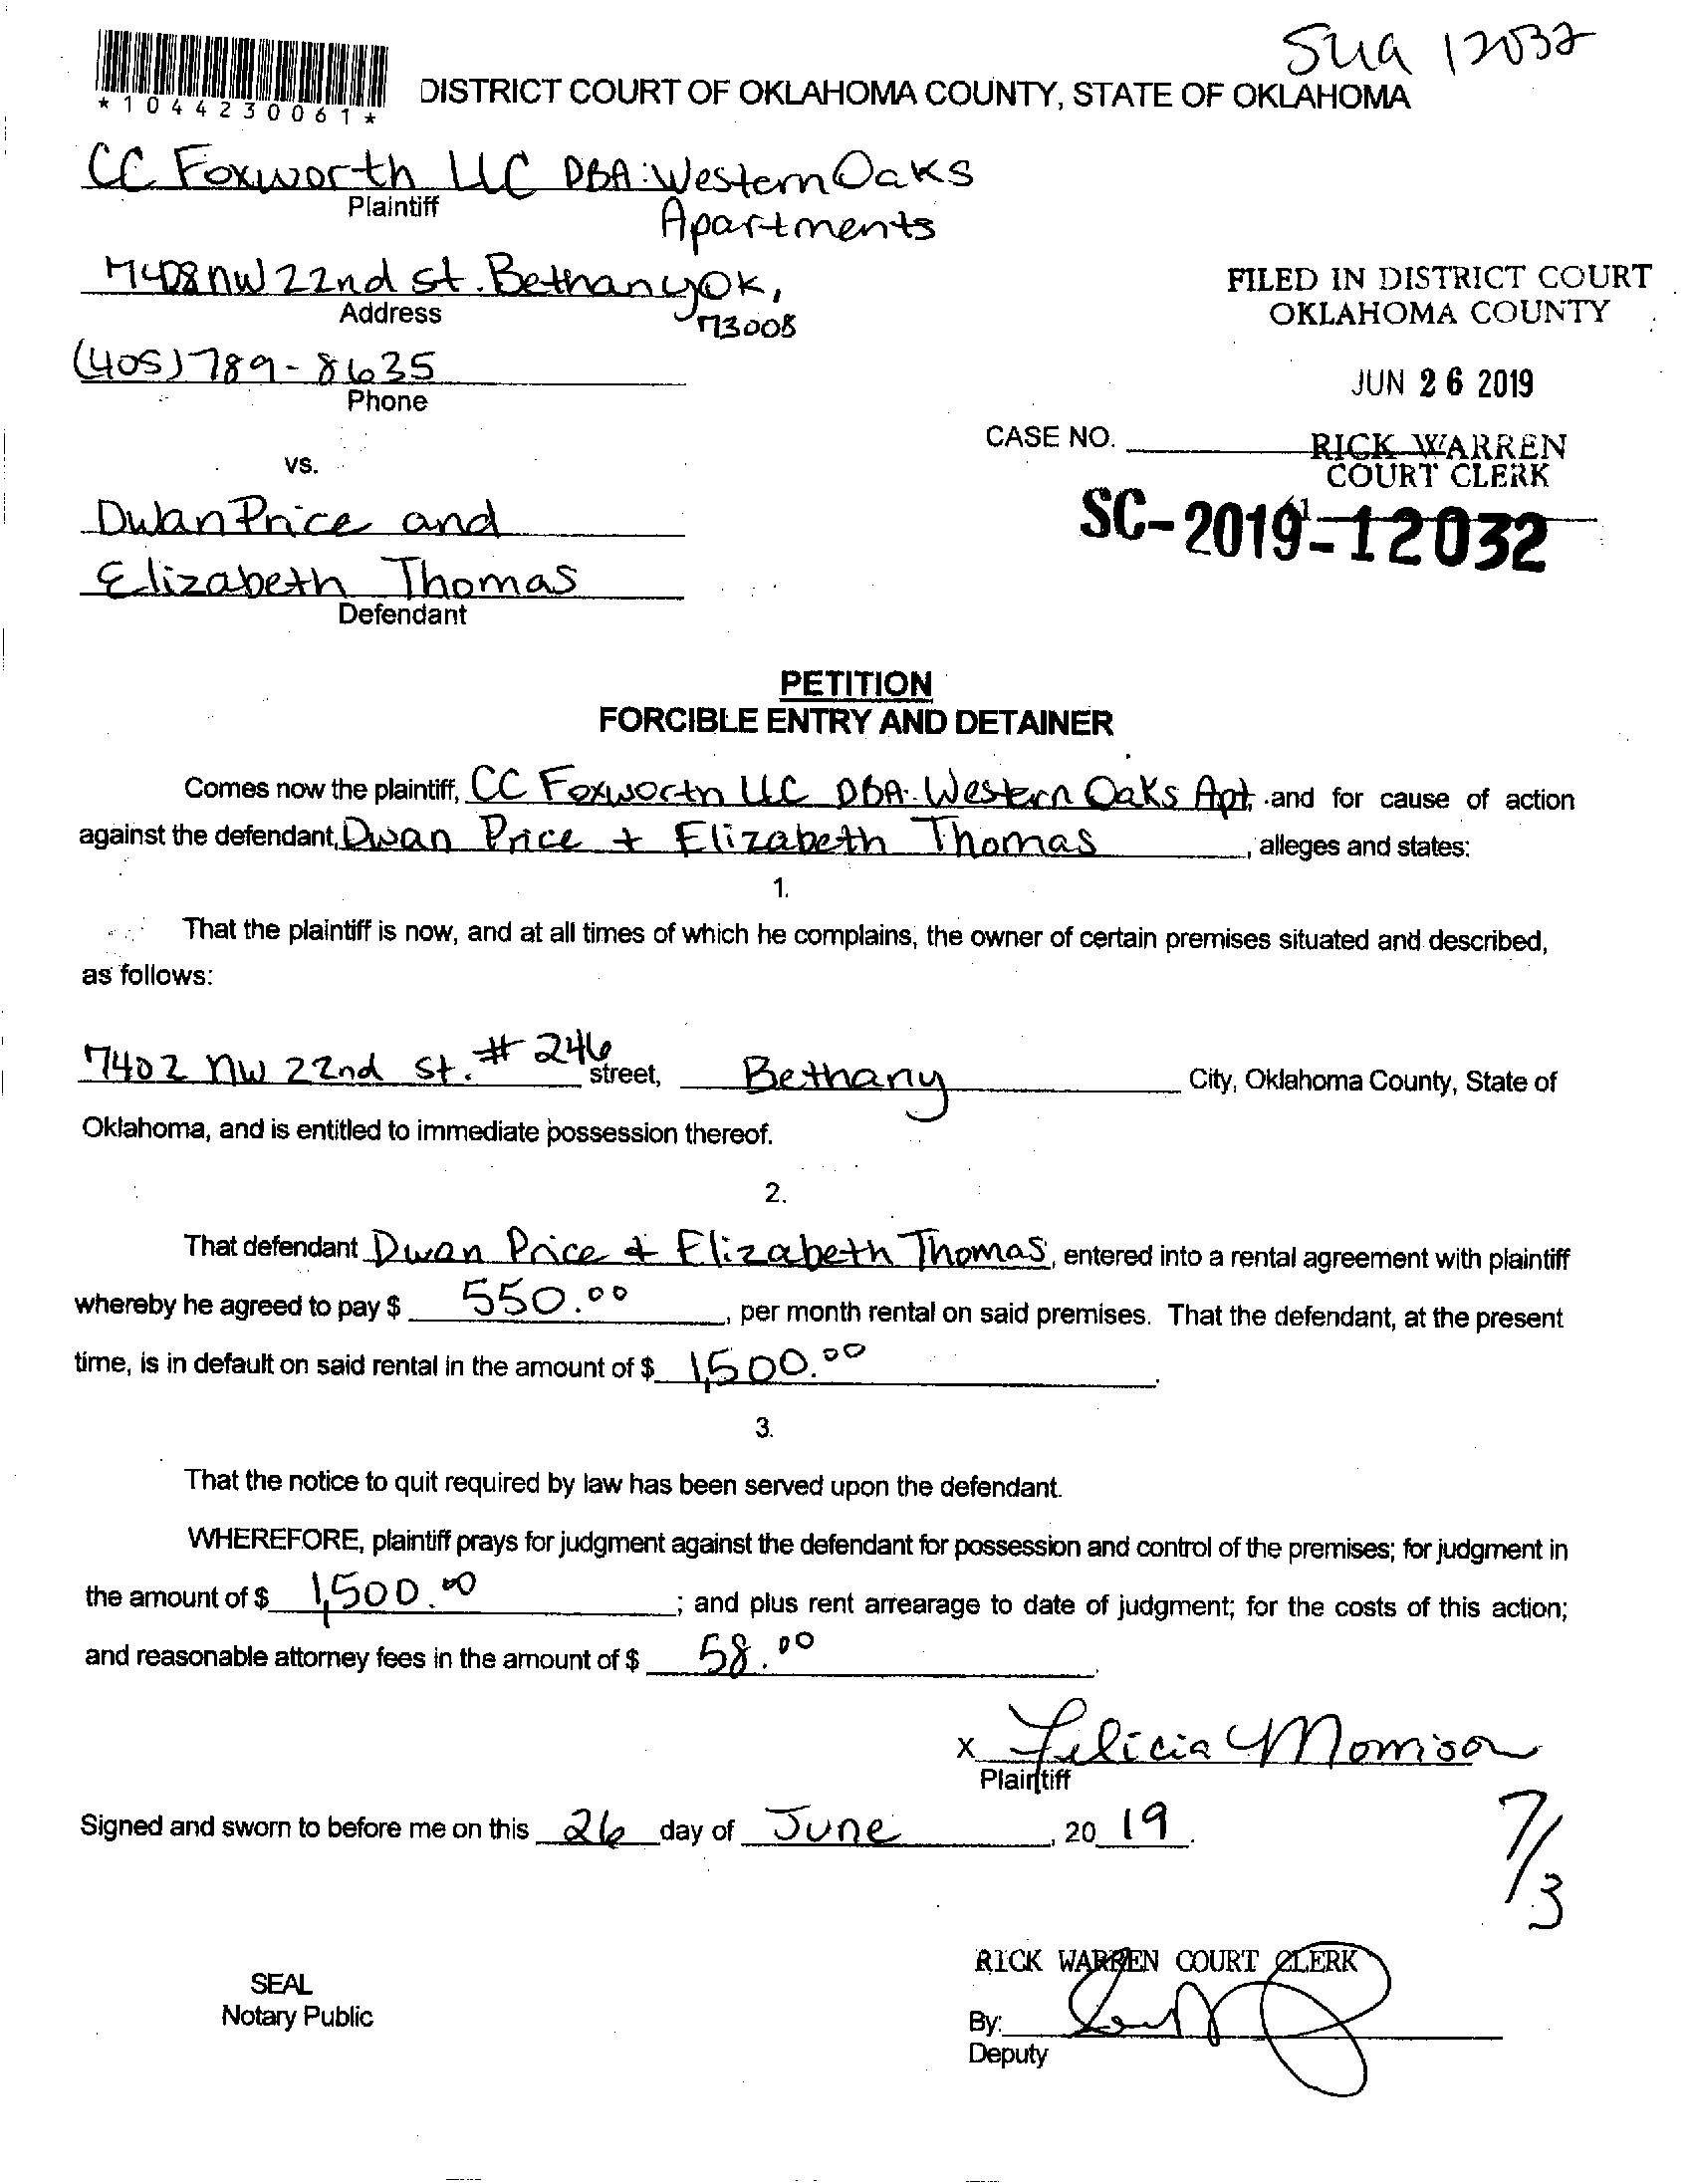 Sua 12032
*1044230061*
DISTRICT COURT OF OKLAHOMA COUNTY, STATE OF OKLAHOMA
CC Foxworth LLC DBA: Western Oaks
Plaintiff
Apartments
7408 NW 22nd St. Bethany OK,
Address
73008
FILED IN DISTRICT COURT
OKLAHOMA COUNTY
(405) 789-8635
Phone
JUN 26 2019
CASE NO.
RICK WARREN
COURT CLERK
vs.
SC-2019-12032
Dwan Price and
Elizabeth Thomas
Defendant
PETITION
FORCIBLE ENTRY AND DETAINER
Comes now the plaintiff, CC Foxworth LLC DBA: Western Oaks Apt, and for cause of action
against the defendant, Dwan Price + Elizabeth Thomas, alleges and states:
1.
That the plaintiff is now, and at all times of which he complains, the owner of certain premises situated and described,
as follows:
7402 NW 22nd St. # 246 street, Bethany City, Oklahoma County, State of
Oklahoma, and is entitled to immediate possession thereof.
2.
That defendant Dwan Price & Elizabeth Thomas, entered into a rental agreement with plaintiff
whereby he agreed to pay $ 550.00, per month rental on said premises. That the defendant, at the present
time, is in default on said rental in the amount of $ 1,500.00.
3.
That the notice to quit required by law has been served upon the defendant.
WHEREFORE, plaintiff prays for judgment against the defendant for possession and control of the premises; for judgment in
the amount of $ 1,500.00; and plus rent arrearage to date of judgment; for the costs of this action;
and reasonable attorney fees in the amount of $ 58.00.
x Felicia Morrison
Plaintiff
Signed and sworn to before me on this 26 day of June, 20 19.
7/3
RICK WARREN COURT CLERK
SEAL
Notary Public
By:
Deputy